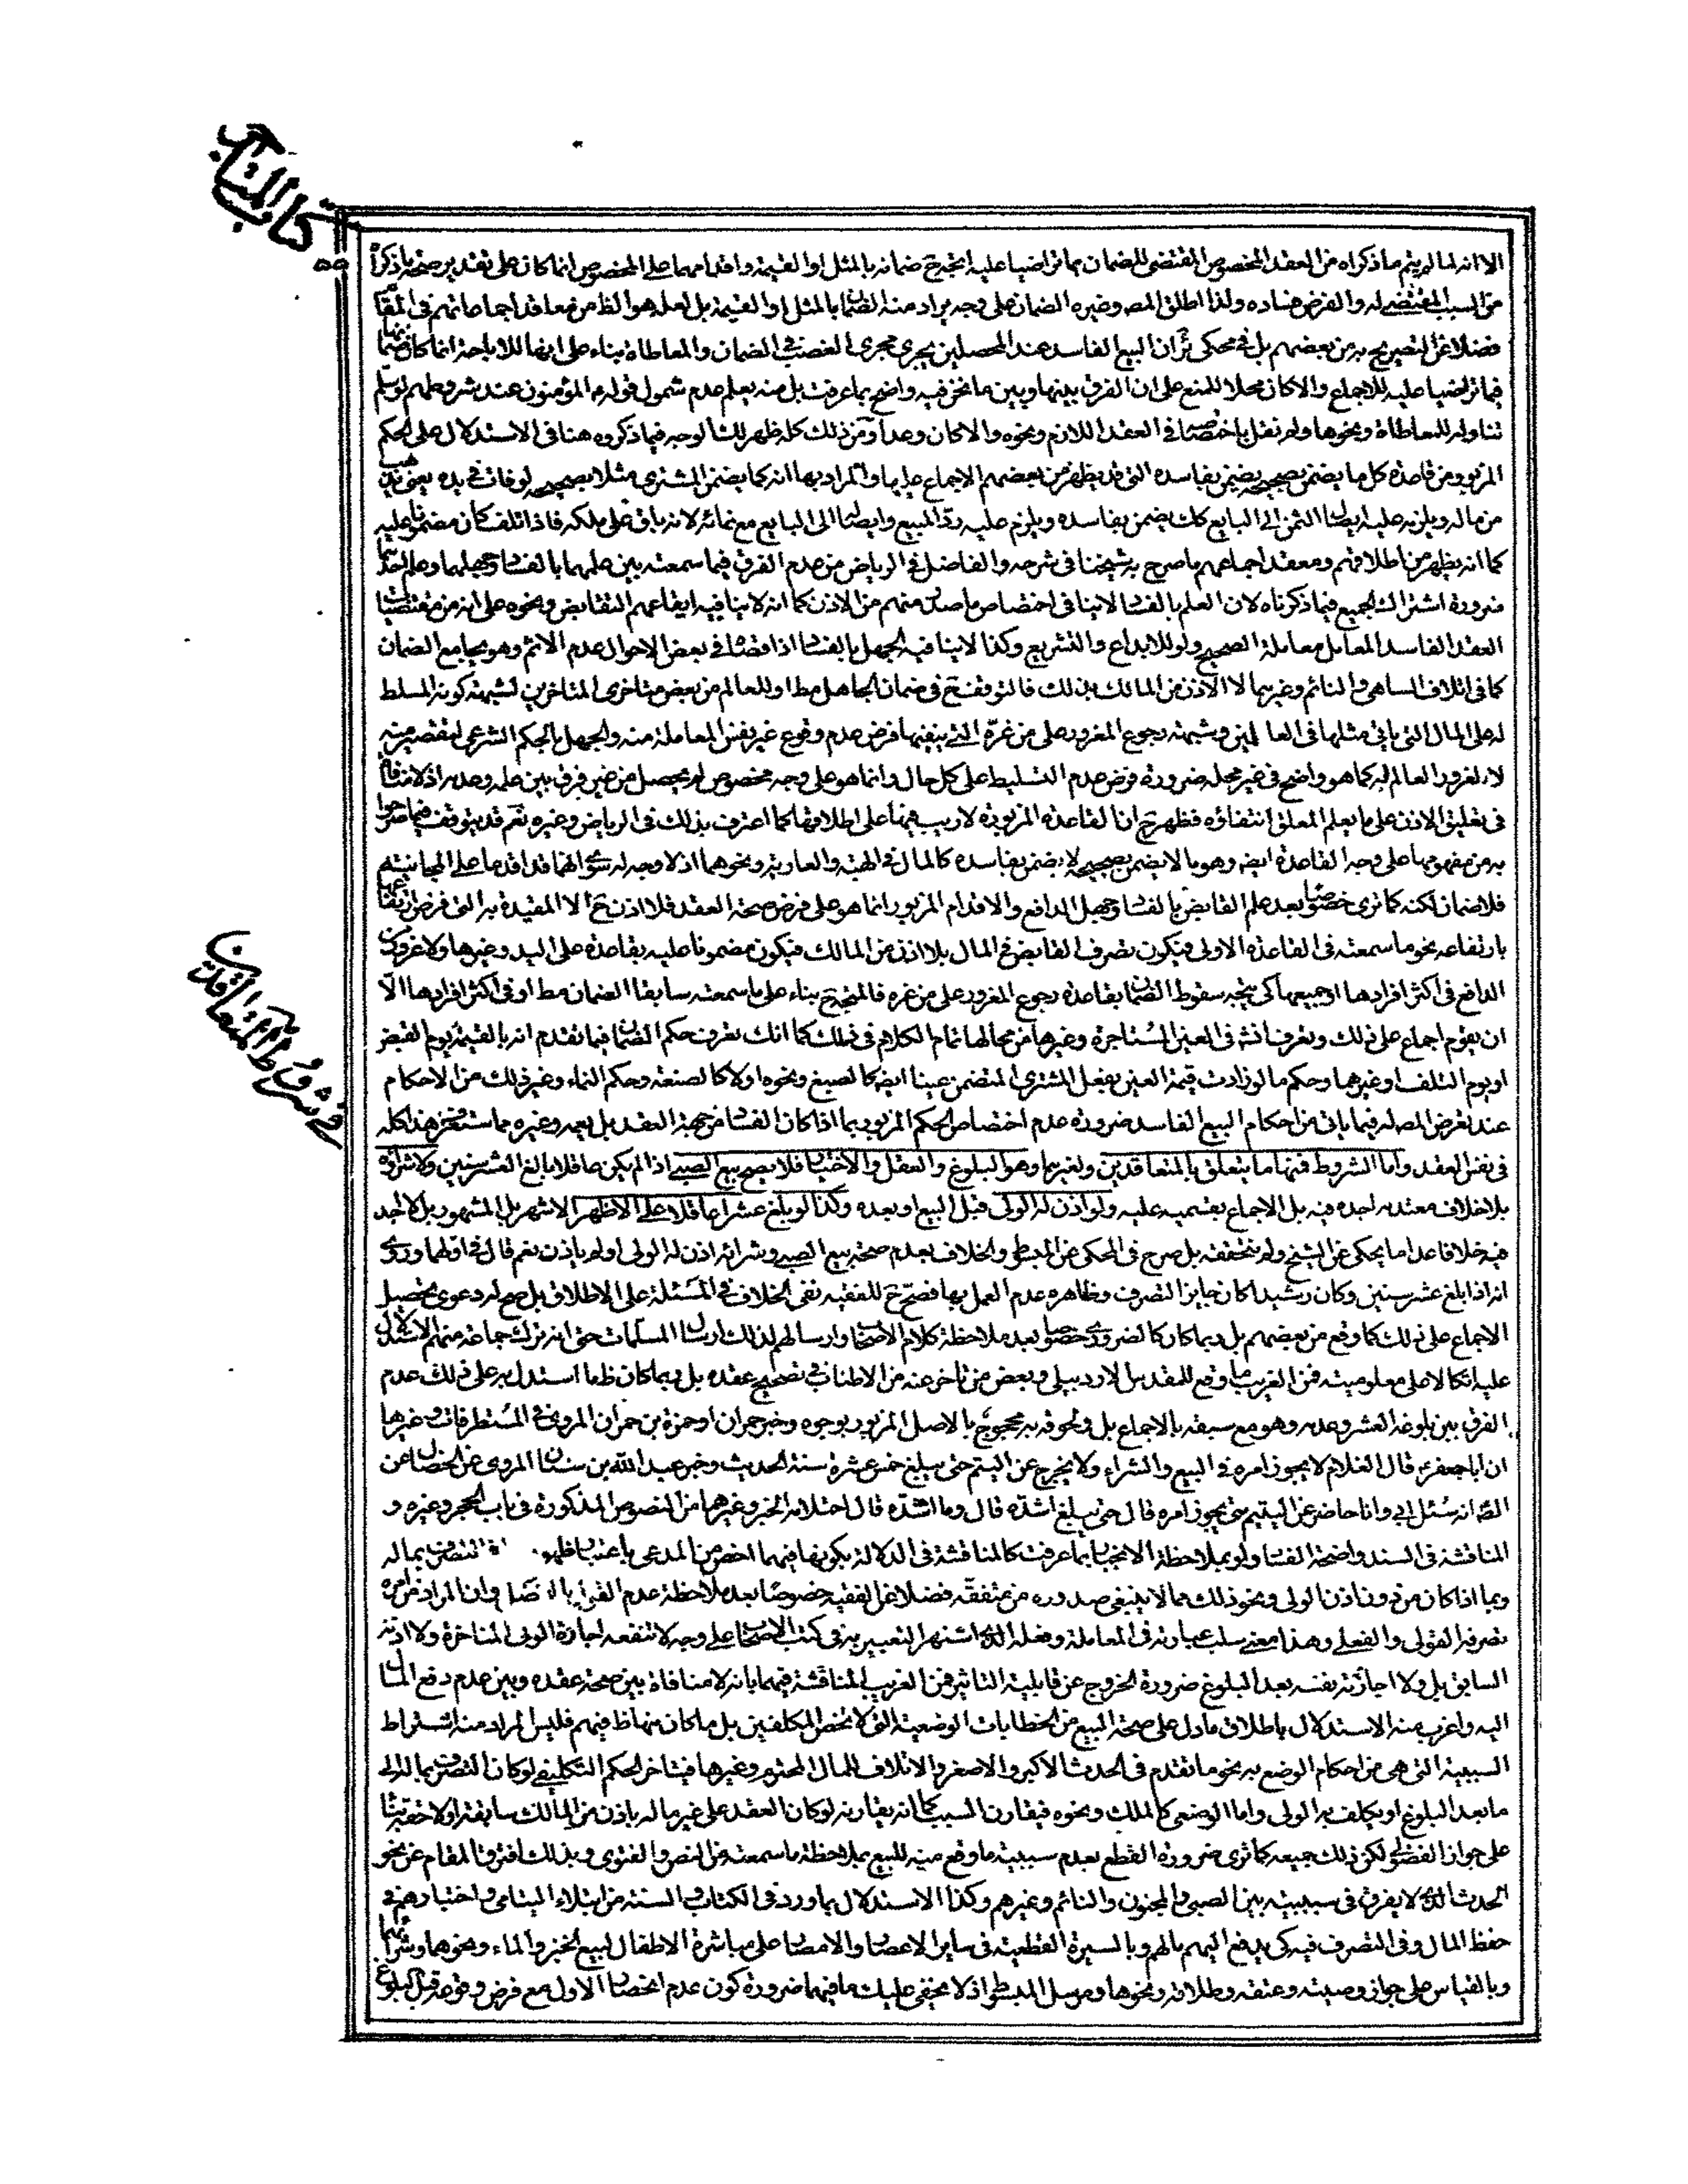 كتاب المتاجر
الا انه لما لم يتم ما ذكراه من العقد المخصوص المقتضى للضمان بما تراضيا عليه اتجه ح ضمانه بالمثل او القيمة واقدامهما على المخصوص انما كان على تقدير صحة ما ذكرا
من السبب المقتضى له والفرض فساده ولذا اطلق المص وغيره الضمان على وجه يراد منه الضمان بالمثل او القيمة بل لعله هو الظ من معاقد اجماعاتهم فى المقام
فضلا عن التصريح به من بعضهم بل فى محكى ئر ان البيع الفاسد عند المحصلين يجرى مجرى الغصب فى الضمان والمعاطاة بناء على انها للاباحة انما كان ضمانها
فيما تراضيا عليه للاجماع والا كان محلا للمنع على ان الفرق بينها وبين ما نحن فيه واضح بما عرفت بل منه يعلم عدم شمول قوله ع المؤمنون عند شروطهم لو سلم
تناوله للمعاطاة ونحوها ولم نقل باختصاصه فى العقد اللازم ونحوه والا كان وعدا ومن ذلك كله ظهر لك الوجه فيما ذكروه هنا فى الاستدلال على الحكم
المزبور من قاعدة كل ما يضمن بصحيحه يضمن بفاسده التى قد يظهر من بعضهم الاجماع عليها والمراد بها انه كما يضمن المشترى مثلا بصحيحه لو فات فى يده بمعنى يذهب
من ماله ويلزمه عليه ايصال الثمن الى البايع كك يضمن بفاسده ويلزم عليه رد المبيع وايصاله الى البايع مع نمائه لانه باق على ملكه فاذا تلف كان مضمونا عليه
كما انه يظهر من اطلاقهم ومعقد اجماعهم ما صرح به شيخنا فى شرحه والفاضل فى الرياض من عدم الفرق فيما سمعته بين علمهما بالفساد وجهلهما وعلم احدهما
ضرورة اشتراك الجميع فيما ذكرناه لان العلم بالفساد لا ينافى اختصاص ما صدر منهم من الاذن كما انه لا ينافيه ايقاعهم التقابض ونحوه على انه من مقتضيات
العقد الفاسد المعامل معاملة الصحيح ولو للابداع والتشريع وكذا لا ينافيه الجهل بالفساد اذا قضا فى بعض الاحوال عدم الاثم وهو يجامع الضمان
كما فى اتلاف الساهى والنائم وغيرهما لا الاذن من المالك بذلك فالتوقف ح فى ضمان الجاهل مط او للعالم من بعض متاخرى المتاخرين لشبهة كونه المسلط
له على المال التى ياتى مثلها فى العالمين وشبهة رجوع المغرور على من غره التى ينفيها فرض عدم وقوع غير نفس المعاملة منه والجهل بالحكم الشرعى لتقصير منه
لا لغرور العالم له كما هو واضح فى غير محله ضرورة فرض عدم التسليط على كل حال وانما هو على وجه مخصوص لم يحصل من غير فرق بين علمه وعدمه اذ لا منافاة
فى تعليق الاذن على ما يعلم المعلق انتفاؤه فظهر ح ان القاعدة المزبورة لا ريب فيها على اطلاقها كما اعترف بذلك فى الرياض وغيره نعم قد يتوقف فيما صرحوا
به من مفهومها على وجه القاعدة ايضا وهو ما لا يضمن بصحيحه لا يضمن بفاسده كالمال فى الهبة والعارية ونحوهما اذ لا وجه له سوى انهما قد اقدما على المجانيته
فلا ضمان لكنه كما ترى خصوصا بعد علم القابض بالفساد وجهل الدافع والاقدام المزبور انما هو على فرض صحة العقد فلا اذن ح الا المقيدة به التى فرض ارتفاعها
بارتفاعه نحو ما سمعته فى القاعدة الاولى فيكون تصرف القابض فى المال بلا اذن من المالك فيكون مضمونا عليه بقاعدة على اليد وغيرها ولا غرور من
الدافع فى اكثر افرادها او جميعها كى يتجه سقوط الضمان بقاعدة رجوع المغرور على من غره فالمتجه ح بناء على ما سمعته سابقا الضمان مط او فى اكثر افرادها الا
ان يقوم اجماع على ذلك وتعرف انش فى العين المستاجرة وغيرها من محالها تمام الكلام فى ذلك كما انك تعرف حكم الضمان فيما تقدم انه بالقيمة يوم القبض
او يوم التلف او غيرهما وحكم ما لو زادت قيمة العين بفعل المشترى المتضمن عينا ايضا كالصبغ ونحوه اولا كالصنعة وحكم النماء وغير ذلك من الاحكام
عند تعرض المص له فيما ياتى من احكام البيع الفاسد ضرورة عدم اختصاص الحكم المزبور بما اذا كان الفساد من جهة العقد بل يعمه وغيره مما ستعرف هذا كله
فى نفس العقد واما الشروط فمنها ما يتعلق بالمتعاقدين ولغيرهما وهو البلوغ والعقل والاختيار فلا يصح بيع الصبى اذا لم يكن عاقلا بالغ العشر سنين ولا شراؤه
بلا خلاف معتد به اجده فيه بل الاجماع بقسميه عليه ولو اذن له الولى قبل البيع او بعده وكذا لو بلغ عشرا عاقلا على الاظهر الاشهر بل المشهور بل لا اجد
فيه خلافا عدا ما يحكى عن الشيخ ولم نتحققه بل صرح فى المحكى عن المبسوط والخلاف بعدم صحة بيع الصبى وشرائه اذن له الولى او لم ياذن نعم قال فى اولهما وروى
انه اذا بلغ عشر سنين وكان رشيدا كان جايز التصرف وظاهره عدم العمل بها فصح ح للفقيه نفى الخلاف فى المسئلة على الاطلاق بل صح له دعوى تحصيل
الاجماع على ذلك كما وقع من بعضهم بل ربما كان كالضرورى خصوصا بعد ملاحظة كلام الاصحاب وارسالهم لذلك ارسال المسلمات حتى انه ترك جماعة منهم الاستدلال
عليه اتكالا على معلوميته فمن الغريب ما وقع للمقدس الاردبيلى وبعض من تاخر عنه من الاطناب فى تصحيح عقده بل ربما كان ظ ما استدل به على ذلك عدم
الفرق بين بلوغه العشر وعدمه وهو مع سبقه بالاجماع بل ولحوقه به محجوج بالاصل المزبور بوجوه وخبر حمران او حمزة بن حمران المروى فى المستطرفات وغيرها
ان ابا جعفر ع قال الغلام لا يجوز امره فى البيع والشراء ولا يخرج عن اليتم حتى يبلغ خمس عشرة سنة الحديث وخبر عبد الله بن سنان المروى عن الخصال عن
الص انه سئل ابى وانا حاضر عن اليتيم متى يجوز امره قال حتى يبلغ اشده قال وما اشده قال احتلامه الخبر وغيرهما من النصوص المذكورة فى باب الحجر وغيره و
المناقشة فى السند واضحة الفساد ولو بملاحظة الانجبار بما عرفت كالمناقشة فى الدلالة بكونها فيهما اخص من المدعى باعتبار ظهور التصرف بماله
وبما اذا كان من دون اذن الولى ونحو ذلك مما لا ينبغى صدوره من متفقه فضلا عن الفقيه خصوصا بعد ملاحظة عدم الفرق وان المراد من امره
تصرفه القولى والفعلى وهذا معنى سلب عبارته فى المعاملة وفعله الذى اشتهر التعبير به فى كتب الاصحاب على وجه لا تنفعه اجازة الولى المتاخرة ولا اذنه
السابق بل ولا اجازته نفسه بعد البلوغ ضرورة الخروج عن قابلية التاثير فمن الغريب المناقشة فيهما بانه لا منافاة بين صحة عقده وبين عدم دفع المال
اليه واغرب منه الاستدلال باطلاق ما دل على صحة البيع من الخطابات الوضعية التى لا تخص المكلفين بل ما كان منها ظ فيهم فليس المراد منه اشتراط
السببية التى هى من احكام الوضع به نحو ما تقدم فى الحدث الاكبر والاصغر والاتلاف للمال المحترم وغيرها فيتاخر الحكم التكليفى لو كان التصرف بماله الى
ما بعد البلوغ او يكلف به الولى واما الوضعى كالملك ونحوه فيقارن السبب كما انه يقارنه لو كان العقد على غير ماله باذن من المالك سابقة او لاحقة بناء
على جواز الفضولى لكن ذلك جميعه كما ترى ضرورة القطع بعدم سببية ما وقع منه للبيع بملاحظة ما سمعته من النص والفتوى وبذلك افترق المقام عن نحو
الحدث الذى لا يفرق فى سببيته بين الصبى والمجنون والنائم وغيرهم وكذا الاستدلال بما ورد فى الكتاب والسنة من ابتلاء اليتامى واختبارهم فى
حفظ المال وفى التصرف فيه كى يدفع اليهم مالهم وبالسيرة القطعية فى ساير الاعصار والامصار على مباشرة الاطفال لبيع الخبز والماء ونحوهما وشرائهما
وبالقياس على جواز وصيته وعتقه وطلاقه ونحوها ومرسل المبسوط اذ لا يخفى عليك ما فيهما ضرورة كون عدم اختصار الاول مع فرض وقوعه قبل البلوغ
فى شروط المتعاقدين